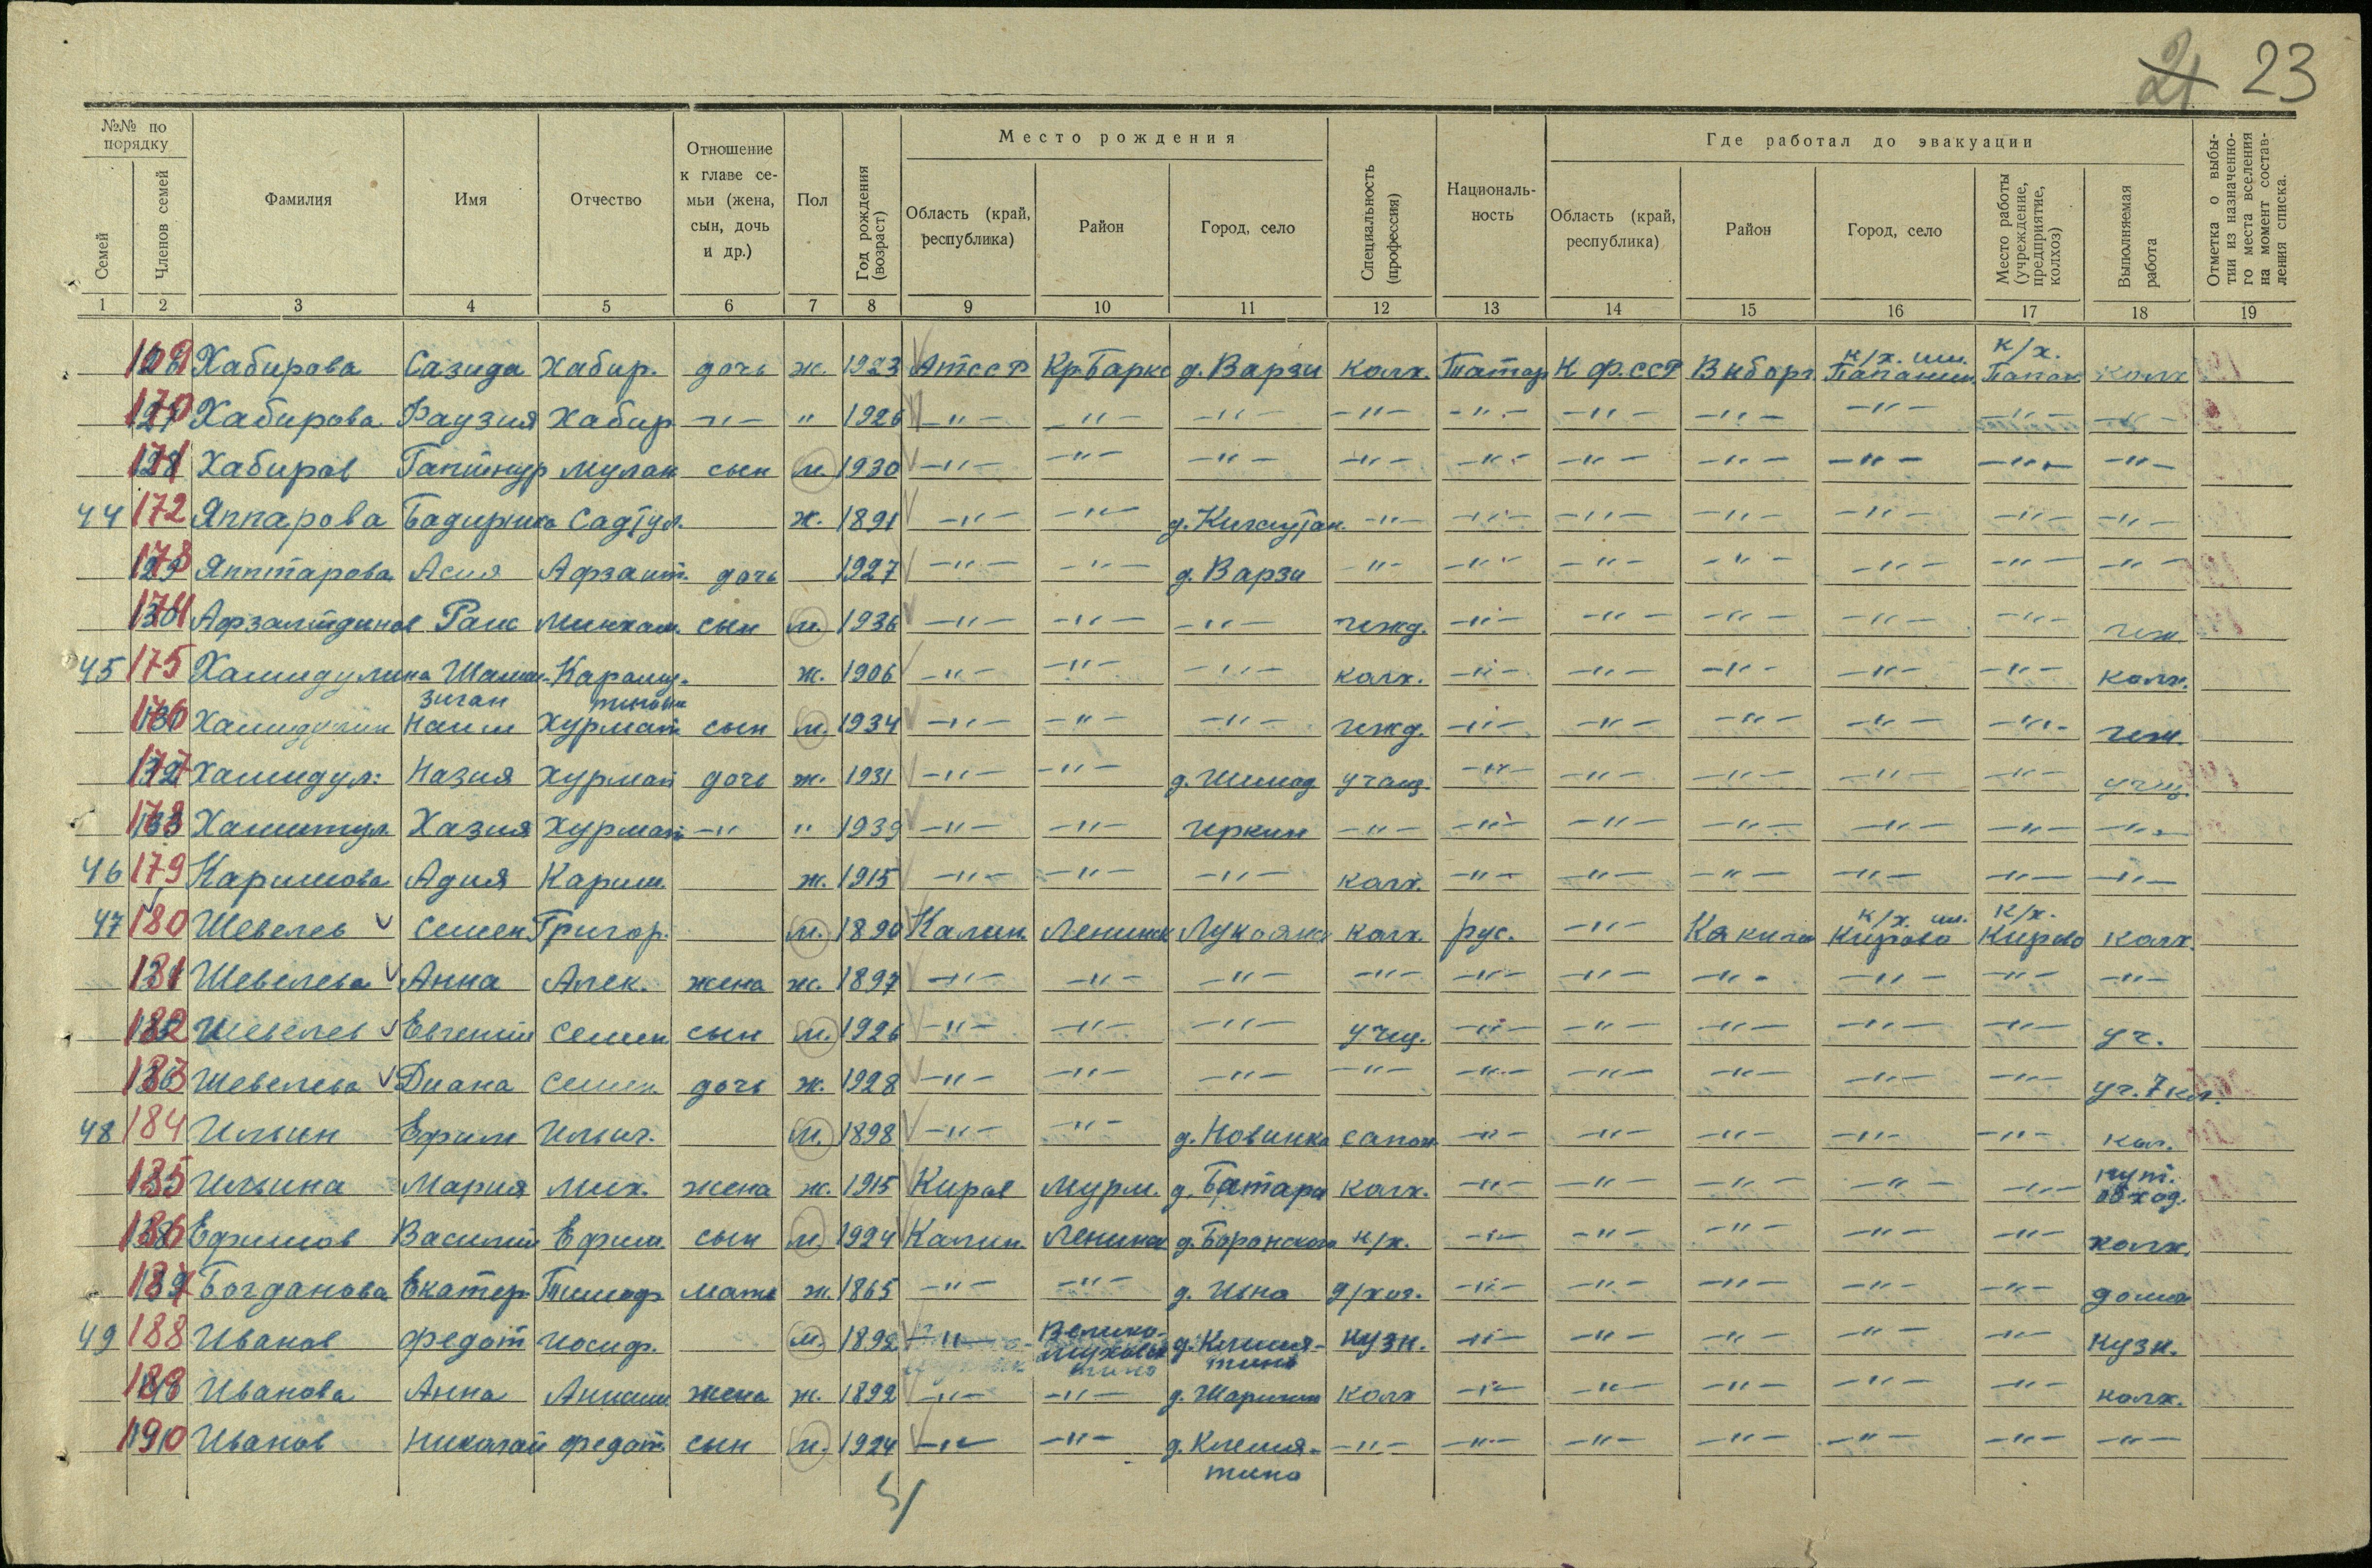 21 23
№№ по порядку
Семей
Членов семей
Фамилия
Имя
Отчество
Отношение к главе семьи (жена, сын, дочь и др.)
Пол
Год рождения (возраст)
Место рождения
Область (край, республика)
Район
Город, село
Специальность (профессия)
Националь-
ность
Где работал до эвакуации
Область (край, республика)
Район
Город, село
Место работы (учреждение, предприятие, колхоз)
Выполняемая работа
Отметка о выбы-
тии из назначенно-
го места вселения
на момент состав-
ления списка.
1 2 3 4 5 6 7 8 9 10 11 12 13 14 15 16 17 18 19
169 Хабирова Сазида Хабир. дочь ж. 1923 АТССР Кр Барко д. Варзи колх. Татар К.Ф.ССР Выборг к/х. им. Папанин. к/х. Папан колх
170 Хабирова Фаузия Хабир -"- " 1926 -"- -"- -"- -"- -"- -"- -"- -"- -"- -"-
171 Хабиров Гапиннур Мулан сын м. 1930 -"- -"- -"- -"- -"- -"- -"- -"- -"- -"-
44 172 Яппарова ж. 1891 -"- -"- -"- -"- -"- -"- -"- -"- -"-
173 Яппарова Асия дочь 1927 -"- -"- д. Варзи -"- -"- -"- -"- -"- -"- -"-
174 Афзалтдинов Раис сын м. 1936 -"- -"- -"- ижд. -"- -"- -"- -"- -"- иж
45 175 Хамидулина ж. 1906 -"- -"- -"- колх. -"- -"- -"- -"- -"- колх.
176 Хамидулин Наим Хурмат сын м. 1934 -"- -"- -"- ижд. -"- -"- -"- -"- -"- иж.
177 Хамидул. Назия Хурмат дочь ж. 1931 -"- -"- учащ. -"- -"- -"- -"- -"- учщ.
178 Хамитул Хазия Хурмат -"- " 1939 -"- -"- -"- -"- -"- -"- -"- -"- -"-
46 179 Каримова Адия Карим. ж. 1915 -"- -"- -"- колх. -"- -"- -"- -"- -"- -"-
47 180 Шевелев Семен Григор. м. 1890 Калин. Ленинск колх. рус. -"- к/х. им. Кирова к/х. Кирово колх.
181 Шевелева Анна Алек. жена ж. 1897 -"- -"- -"- -"- -"- -"- -"- -"- -"- -"-
182 Шевелев Евгений Семен сын м. 1926 -"- -"- -"- учщ. -"- -"- -"- -"- -"- уч.
183 Шевелева Диана Семен. дочь ж. 1928 -"- -"- -"- -"- -"- -"- -"- -"- -"- уч. 7 кл.
48 184 Ильин Ефим Ильич. м. 1898 -"- -"- д. Новинка сапож -"- -"- -"- -"- -"- кол.
185 Ильина Мария Мих. жена ж. 1915 Киров Мурм. д. Батара колх. -"- -"- -"- -"- -"- пут. обход.
186 Ефимов Василий Ефим. сын м. 1924 Калин. Ленинск к/х. -"- -"- -"- -"- -"- колх.
187 Богданова Екатер. Тимоф мать ж. 1865 -"- -"- д. Ина д/хоз. -"- -"- -"- -"- -"- дома
49 188 Иванов Федот Иосиф. м. 1892 -"- д. Клемя-
тино кузн. -"- -"- -"- -"- -"- кузн.
189 Иванова Анна жена ж. 1892 -"- -"- д. Шарихин колх -"- -"- -"- -"- -"- колх.
190 Иванов Николай Федот. сын м. 1924 -"- -"- д. Клемя-
тино -"- -"- -"- -"- -"- -"- -"-